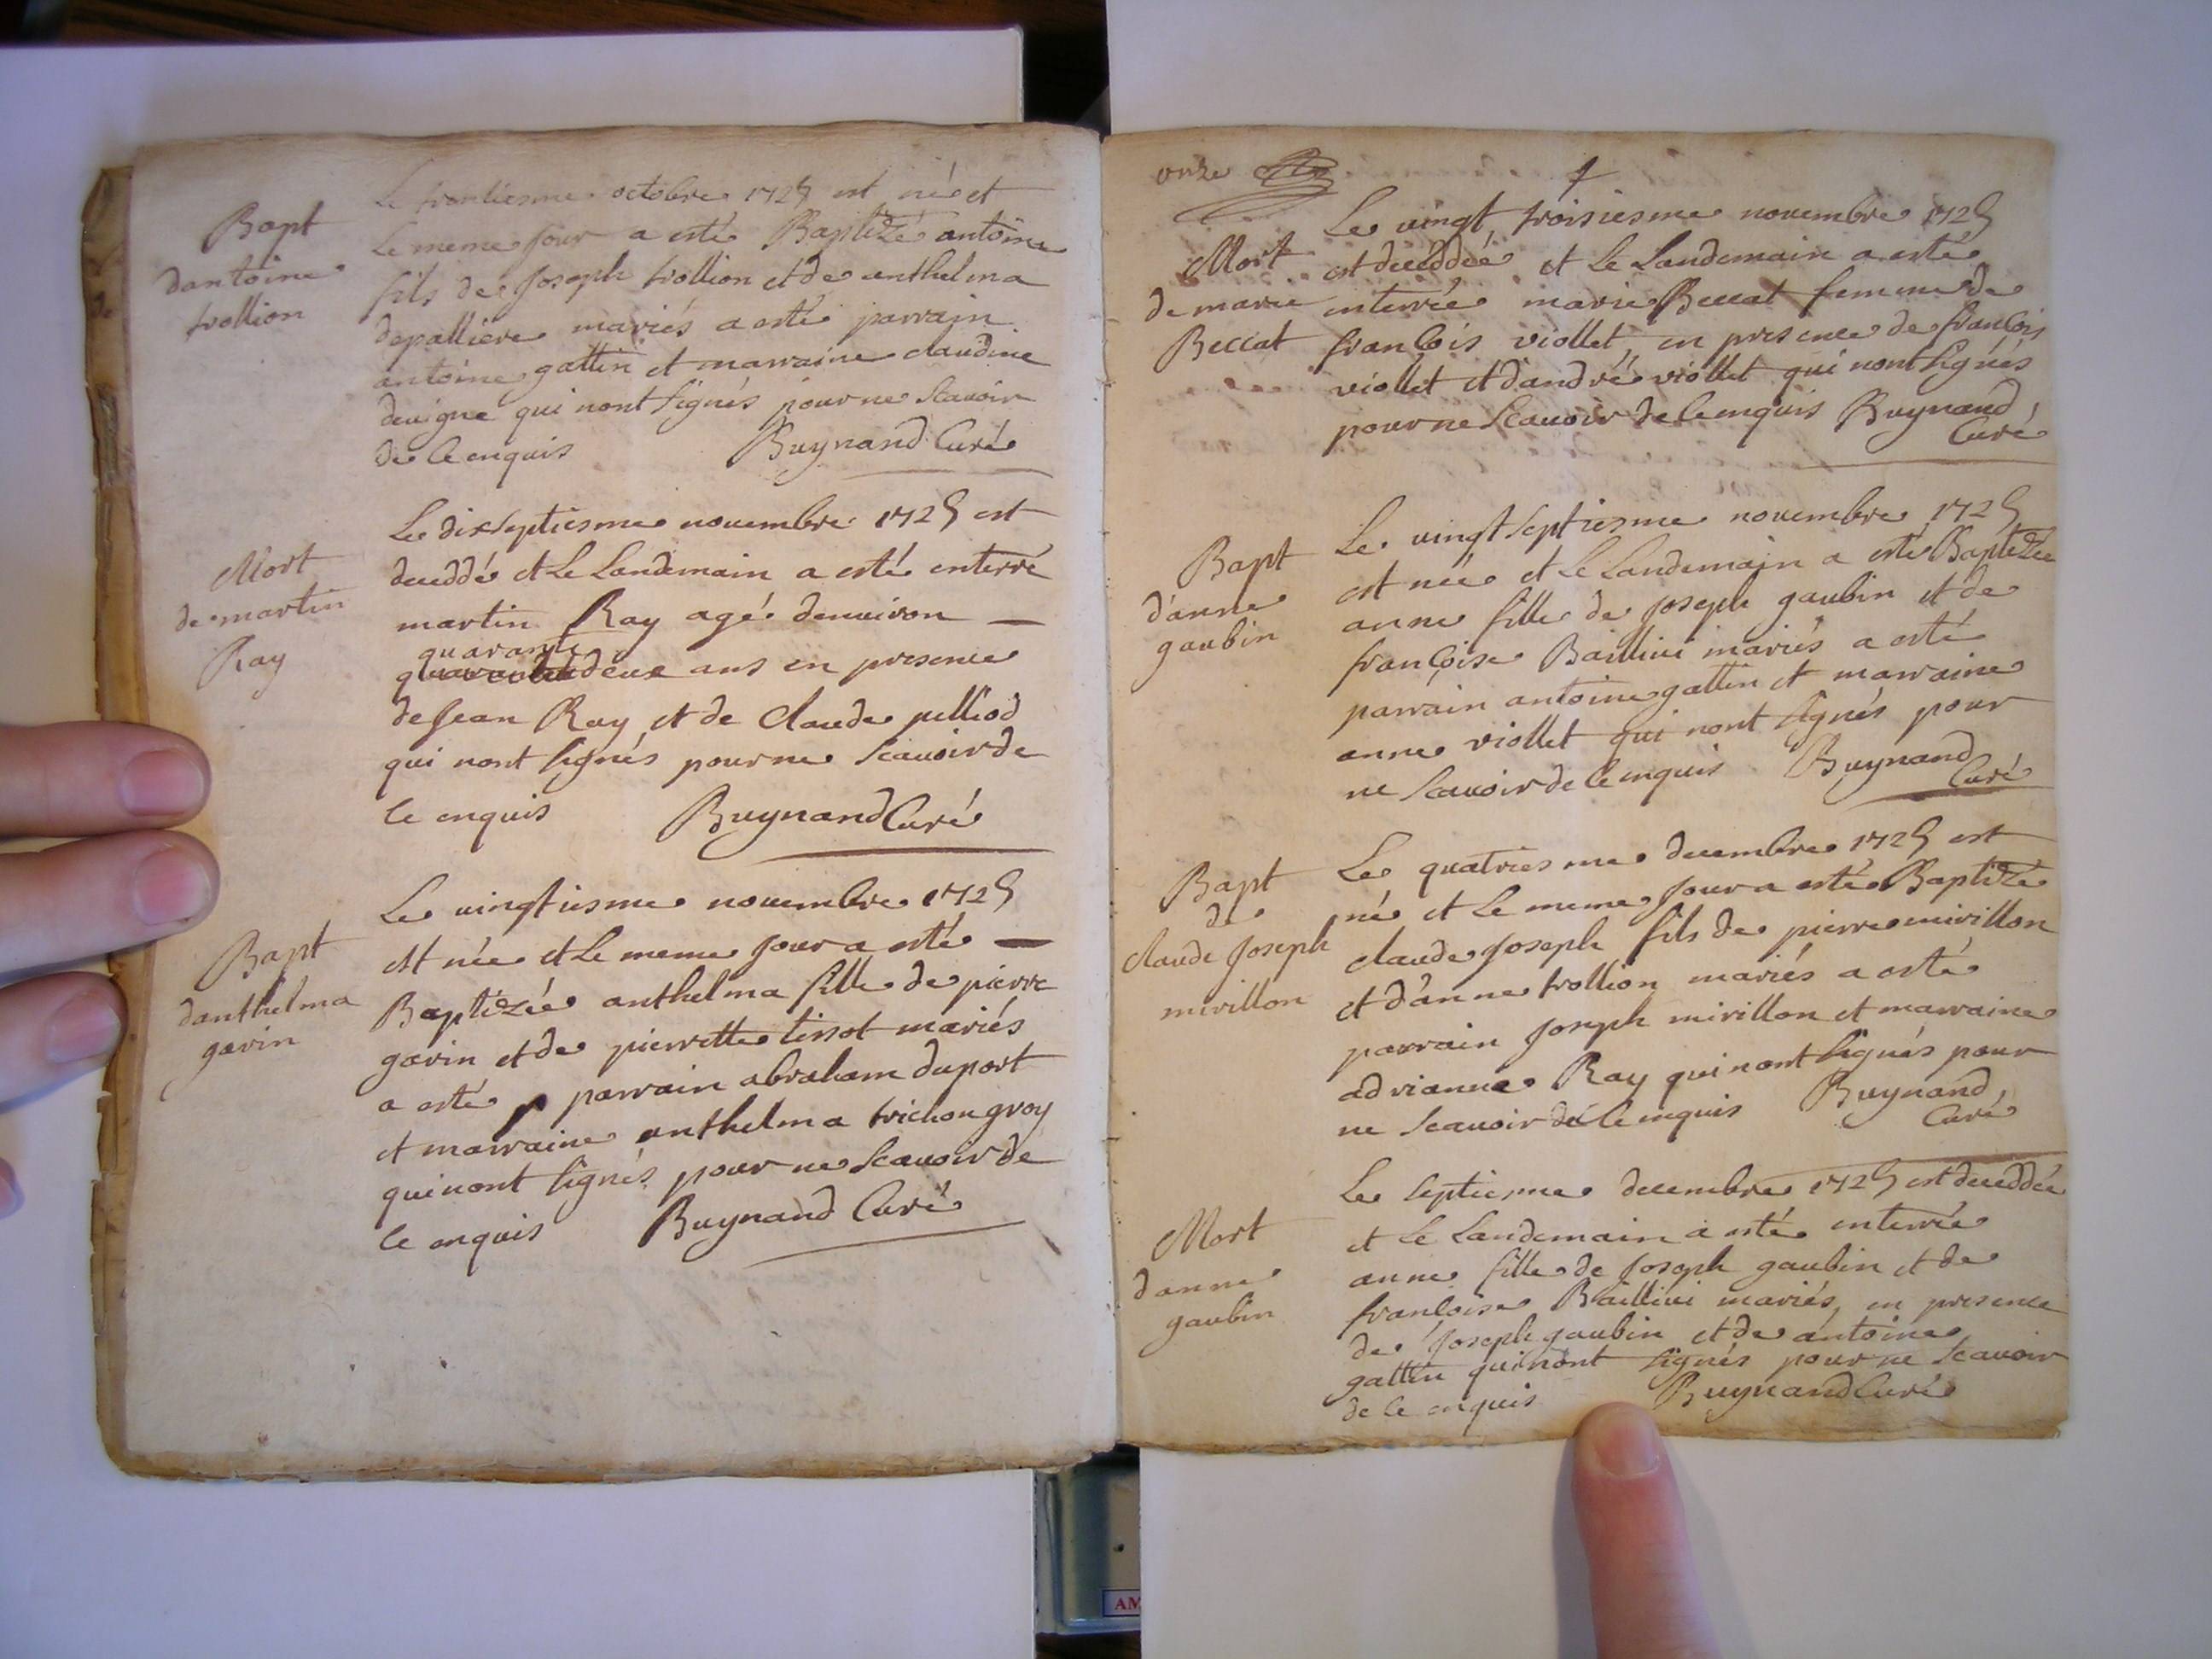 Bapt
dantoine
trollion
Le trentiesme octobre 1725 est né et
le meme jour a esté Baptizé antoine
fils de Joseph trollion et de anthelma
depalliere mariés a esté parrain
antoine gattin et marraine claudine
deuigne qui nont signés pour ne scauoir
de ce enquis Buynand Curé
Mort
de martin
Ray
Le dixseptiesme nouembre 1725 est
deceddé et le Landemain a esté enterré
martin Ray agé denuiron
quarante
deux ans en presence
de Jean Ray et de Claude pelliod
qui nont signés pour ne scauoir de
ce enquis Buynand Curé
Bapt
danthelma
gavin
Le uingtiesme nouembre 1725
est née et le meme jour a esté
Baptizée anthelma fille de pierre
gavin et de pierrette tissot mariés
a esté p parrain abraham duport
et marraine anthelma trichon groy
qui nont signés pour ne scauoir de
ce enquis Buynand Curé
onze
Mort
de marie
Beccat
Le uingt troisiesme nouembre 1725
est deceddée et le Landemain a esté
enterrée marie Beccat femme de
francois viollet, en presence de francois
viollet et dandré viollet qui nont signés
pour ne scauoir de ce enquis Buynand
Curé
Bapt
danne
gaubin
Le uingt septiesme nouembre 1725
est née et le Landemain a esté Baptizée
anne fille de Joseph gaubin et de
françoise Baillivi mariés a esté
parrain antoine gattin et marraine
anne viollet qui nont signés pour
ne scauoir de ce enquis Buynand
Curé
Bapt
de
claude Joseph
mirillon
Le quatriesme decembre 1725 est
né et le meme jour a esté Baptizé
claude Joseph fils de pierre mirillon
et danne trollion mariés a esté
parrain Joseph mirillon et marraine
adrianne Ray qui nont signés pour
ne scauoir de ce enquis Buynand
Curé
Mort
danne
gaubin
Le septiesme decembre 1725 est deceddée
et le Landemain a esté enterrée
anne fille de Joseph gaubin et de
francoise Baillivi mariés, en presence
de Joseph gaubin et de antoine
gattin qui nont signés pour ne scauoir
de ce enquis Buynand Curé
AM